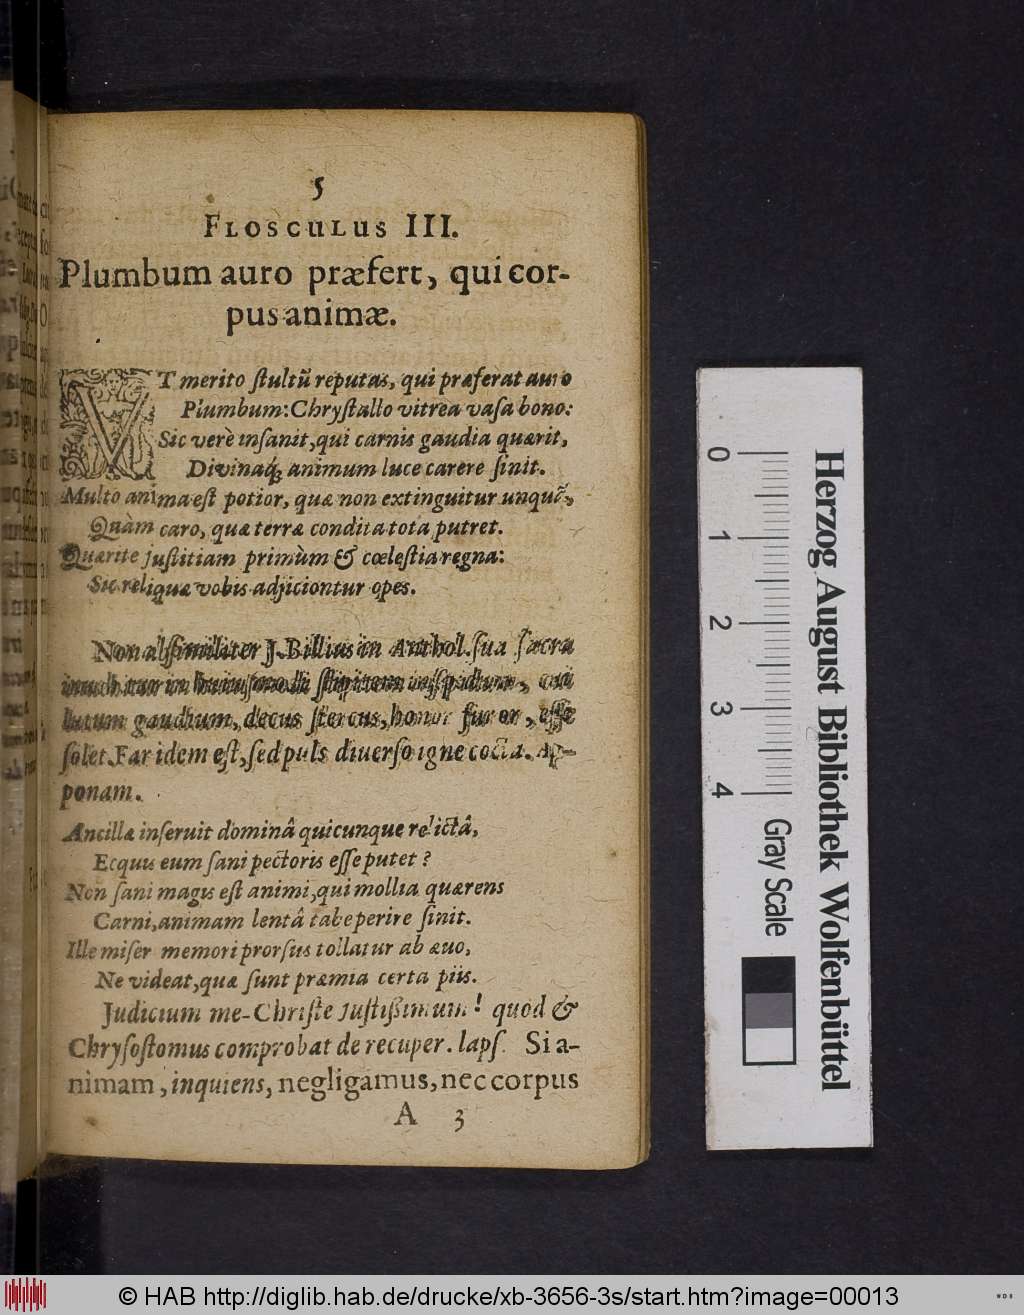 5
FLOSCULUS III.
Plumbum auro præfert, qui cor-
pus animæ.
VT merito ſtultũ reputas, qui præferat auro
Plumbum: Chryſtallo vitrea vaſa bono:
Sic verè inſanit, qui carnis gaudia quærit,
Divinaq́; animum luce carere ſinit.
Multo anima eſt potior, quæ non extinguitur unquã,
Quàm caro, quæ terræ condita tota putret.
Quærite juſtitiam primùm & cœleſtia regna:
Sic reliquæ vobis adjiciontur opes.
Non abſimiliter J. Billius in Anthol. ſua ſacra
in hujuſmodi ſtipitem cui
lutum gaudium, decus ſtercus, honor furor, eſſe
ſolet. Far idem eſt, ſed puls diverſo igne cocta. Ap-
ponam.
Ancillæ inſeruit dominâ quicunque relictâ,
Ecquis eum ſani pectoris eſſe putet?
Non ſani magis eſt animi, qui mollia quærens
Carni, animam lentâ tabe perire ſinit.
Ille miſer memori prorſus tollatur ab ævo,
Ne videat, quæ ſunt præmia certa piis.
Judicium me-Chriſte juſtiſſimum! quod &
Chryſoſtomus comprobat de recuper. lapſ. Si a-
nimam, inquiens, negligamus, nec corpus
A 3
0 1 2 3 4
Gray Scale
Herzog August Bibliothek Wolfenbüttel
© HAB http://diglib.hab.de/drucke/xb-3656-3s/start.htm?image=00013